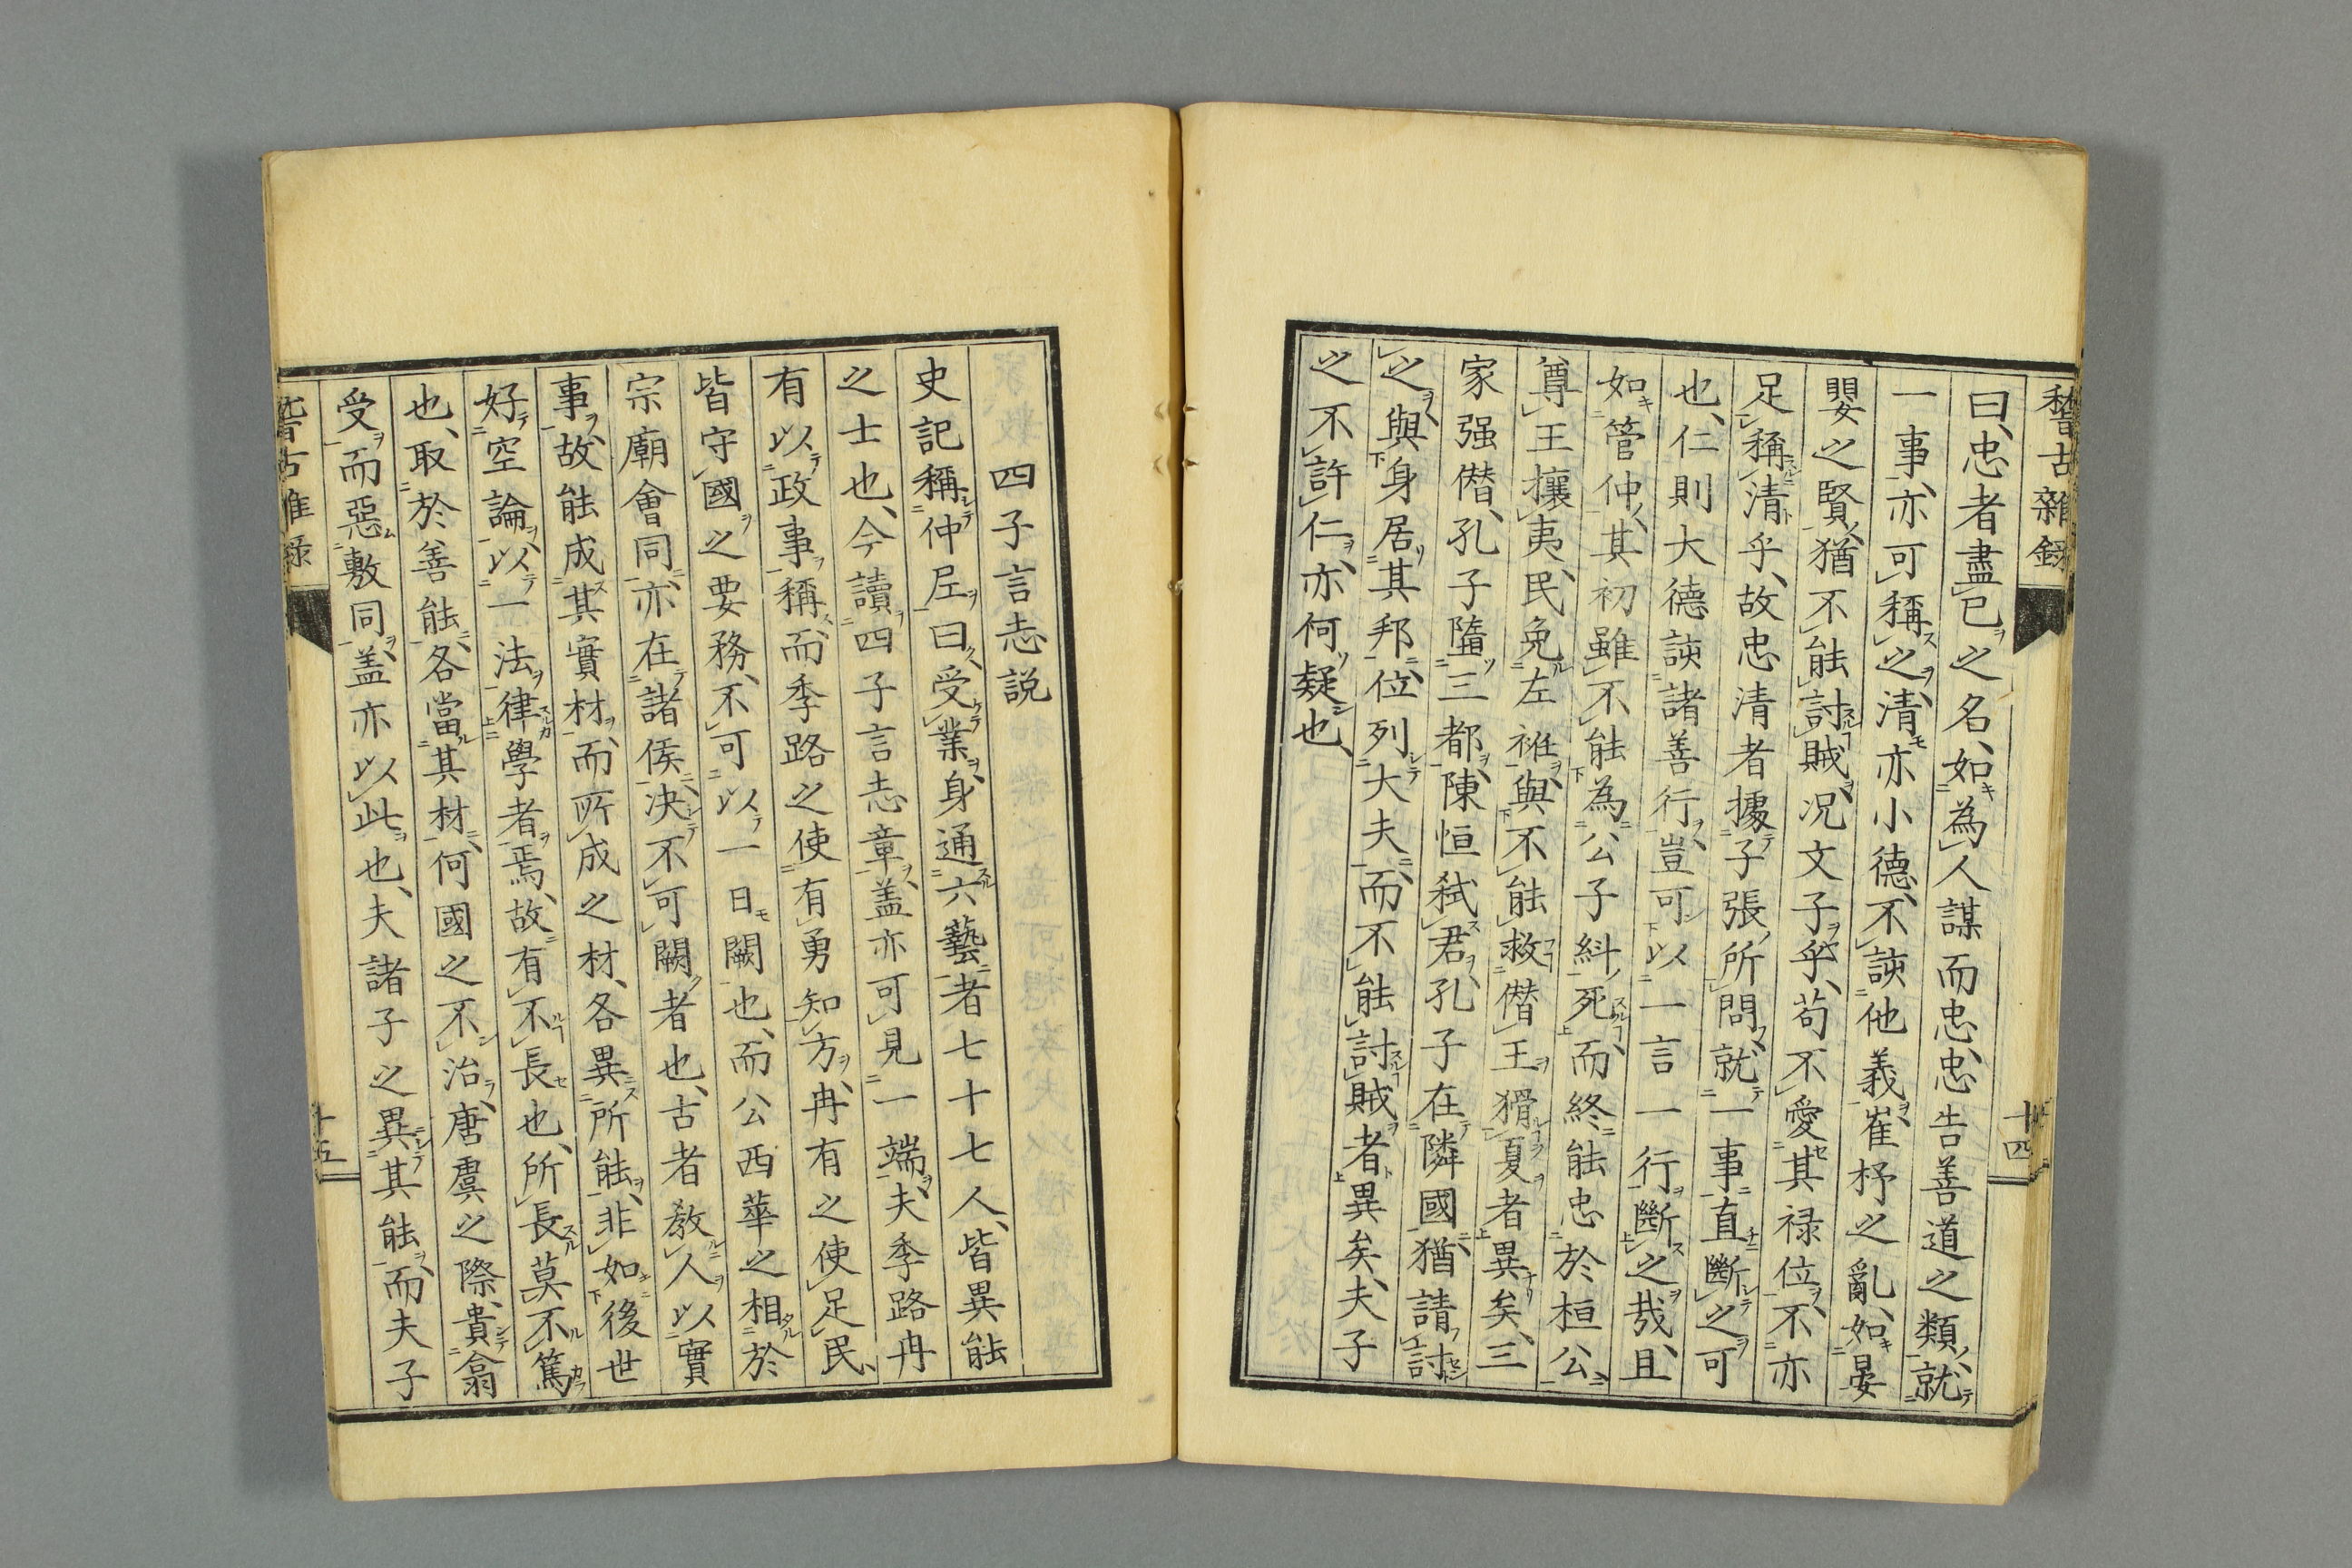 稽古雜録
十四
曰、忠者盡己之名、如為人謀而忠、忠告善道之類、就
一事、亦可稱之、清亦小德、不該他義、崔杼之亂、如晏
嬰之賢、猶不能討賊、況文子乎、苟不愛其禄位、不亦
足稱清乎、故忠清者據子張所問、就一事直斷之可
也、仁則大德該諸善行、豈可以一言一行斷之哉、且
如管仲、其初雖不能為公子糾死、而終能忠於桓公
尊王攘夷、民免左袵、與不能救僭王猾夏者異矣、三
家强僭、孔子隳三都、陳恒弑君、孔子在隣國、猶請討
之、與身居其邦、位列大夫、而不能討賊者異矣、夫子
之不許仁、亦何疑也、
四子言志説
史記稱仲尼曰、受業身通六藝者七十七人、皆異能
之士也、今讀四子言志章、盖亦可見一端、夫季路冉
有以政事稱、而季路之使有勇知方、冉有之使足民、
皆守國之要務、不可以一日闕也、而公西華之相於
宗廟會同、亦在諸侯、决不可闕者也、古者教人以實
事、故能成其實材、而所成之材、各異所能、非如後世
好空論、以一法律學者焉、故有不長也、所長莫不篤
也、取於善能、各當其材、何國之不治、唐虞之際、貴翕
受而惡敷同、盖亦以此也、夫諸子之異其能、而夫子
稽古雜録
十五